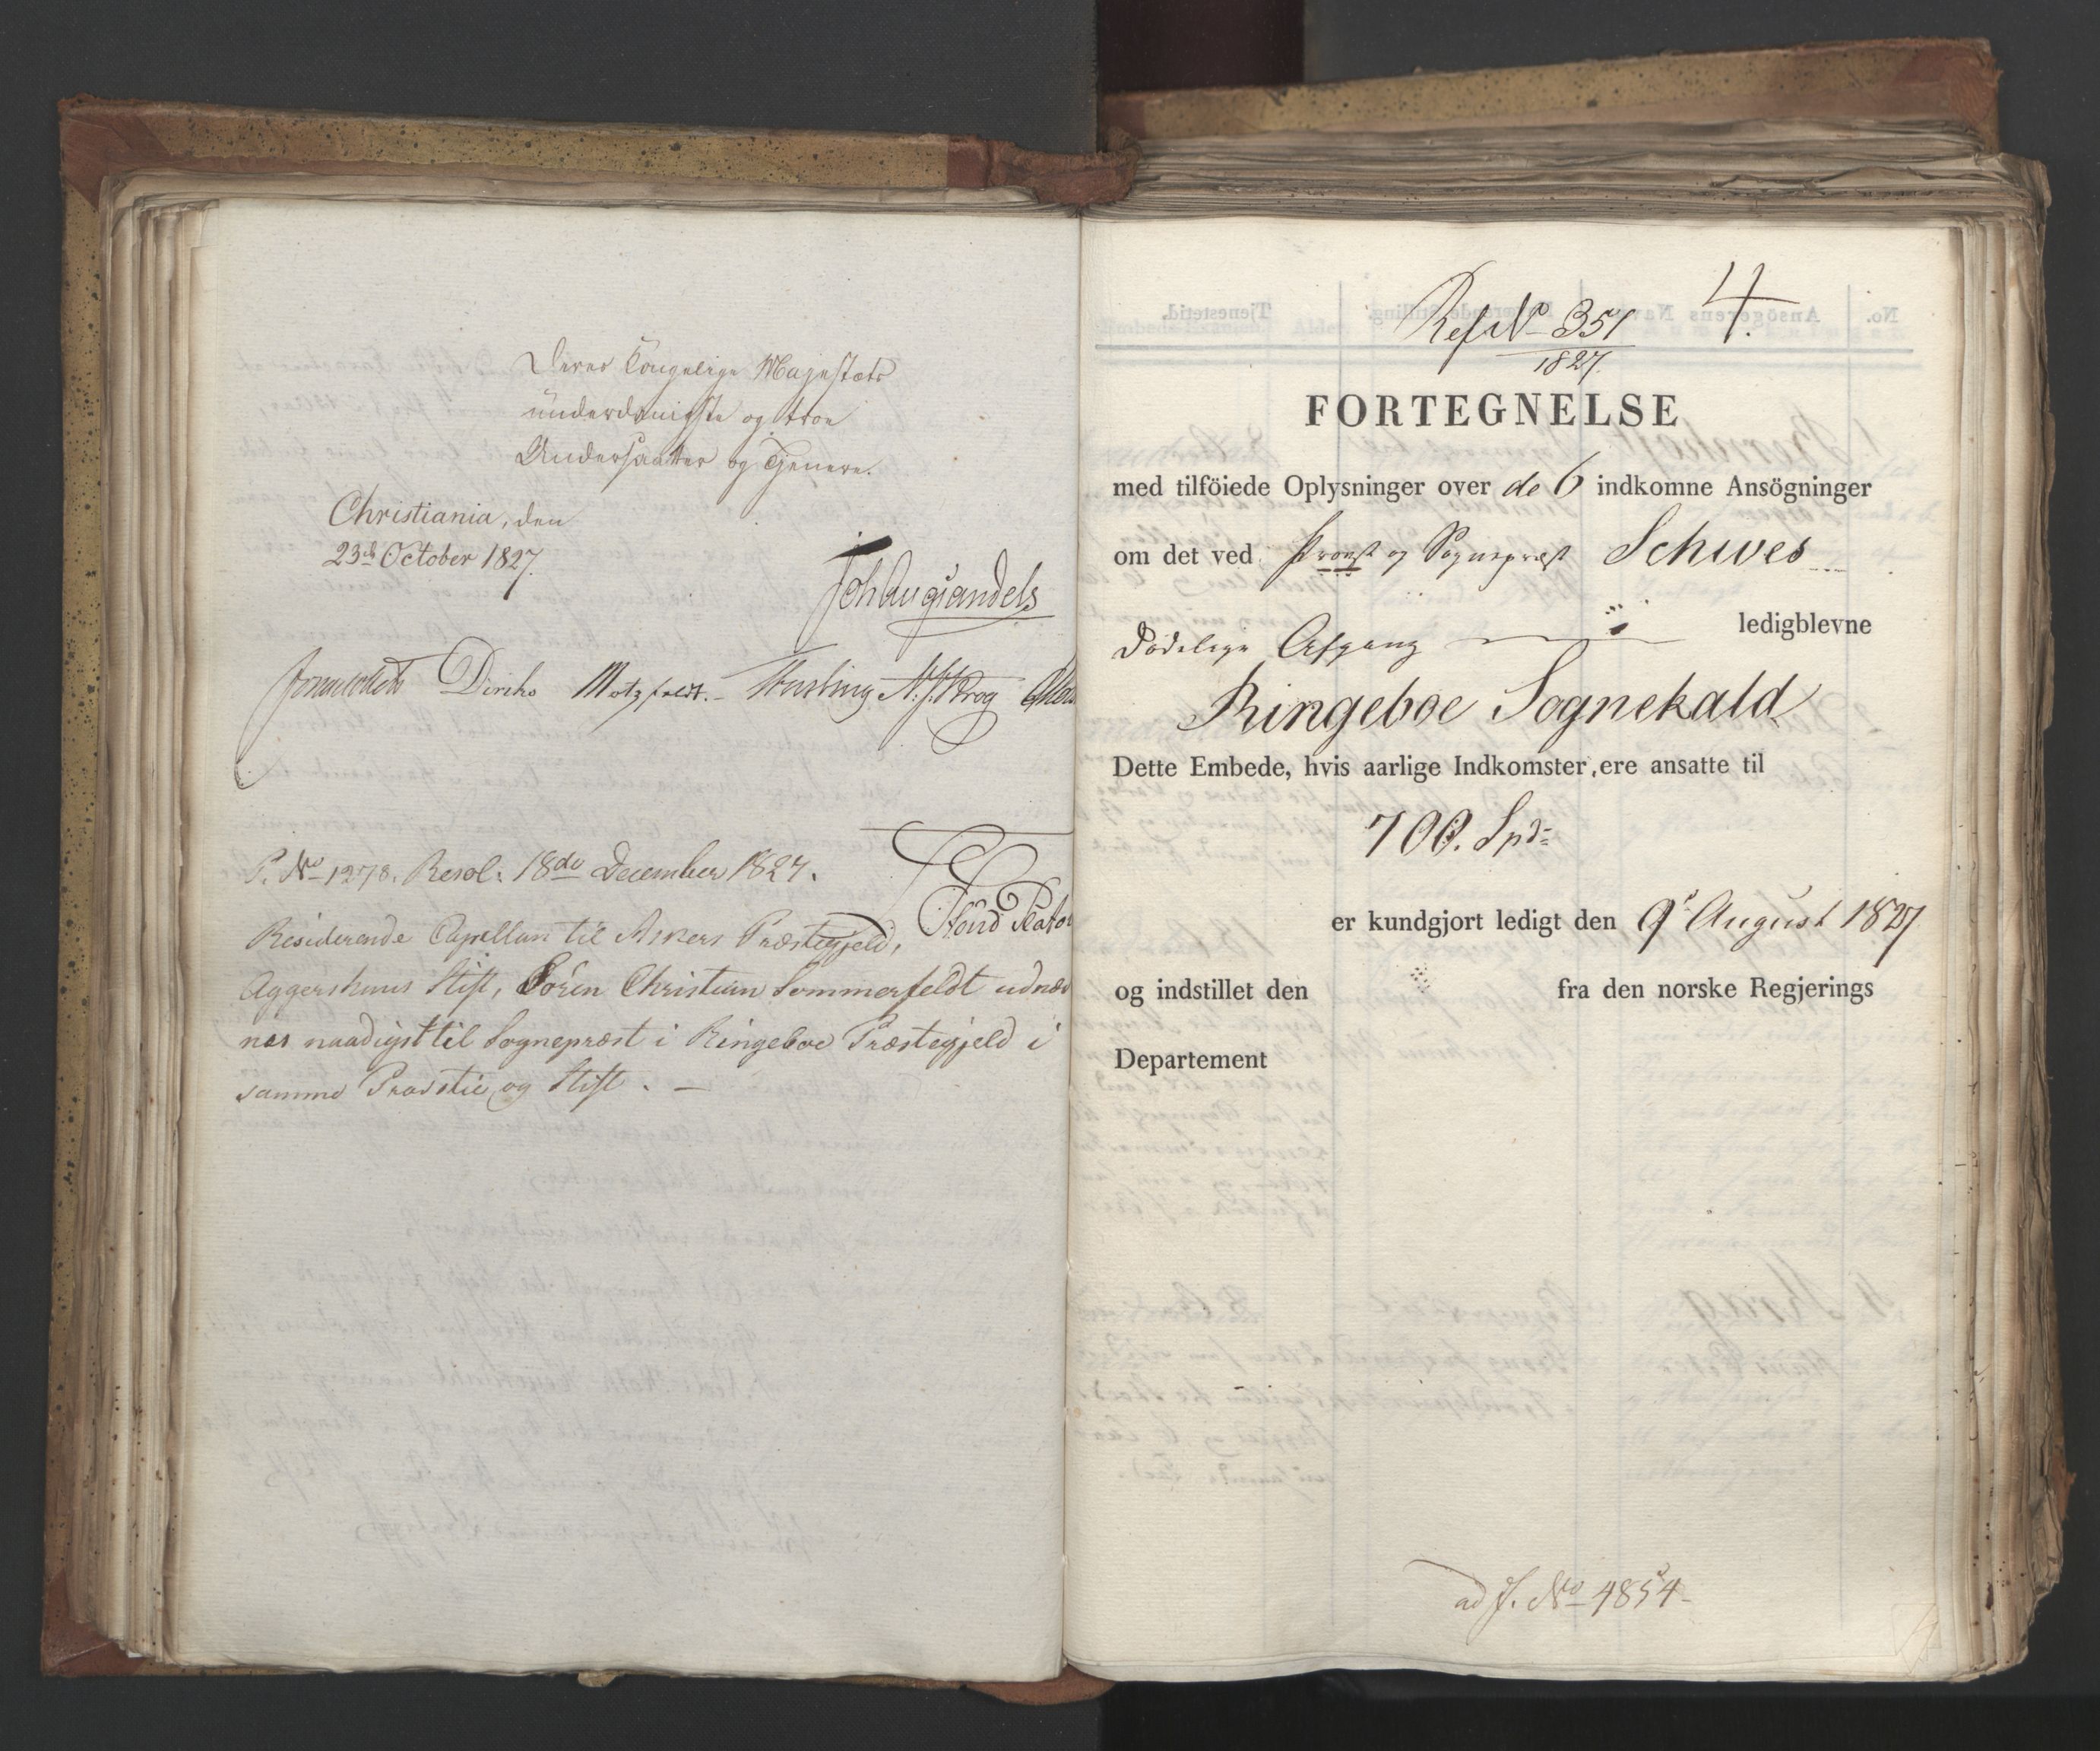 Deres Kongelige Majestæts
underdanigste og troe
Undersaatter og Tjenere.
Christiania, den
23de October 1827.
Joh Aug Sandels
Jonas Collett Diriks Motzfeldt. N. J. Krog
P. No 1278. Resol: 18de December 1827.
Residerende Capellan til Askers Præstegjeld,
Aggershuus Stift, Sören Christian Sommerfeldt udnæv
nes naadigst til Sognepræst i Ringeboe Præstegjeld i
samme Provstie og Stift. —
Ref. No 351
1827.
4.
FORTEGNELSE
med tilföiede Oplysninger over de 6 indkomne Ansögninger
om det ved Provst og Sognepræst Schives
dödelige Afgang ledigblevne
Ringeboe Sognekald
Dette Embede, hvis aarlige Indkomster, ere ansatte til
700. Spd
er kundgjort ledigt den 9 August 1827
og indstillet den fra den norske Regjerings
Departement
ad J. No 4854